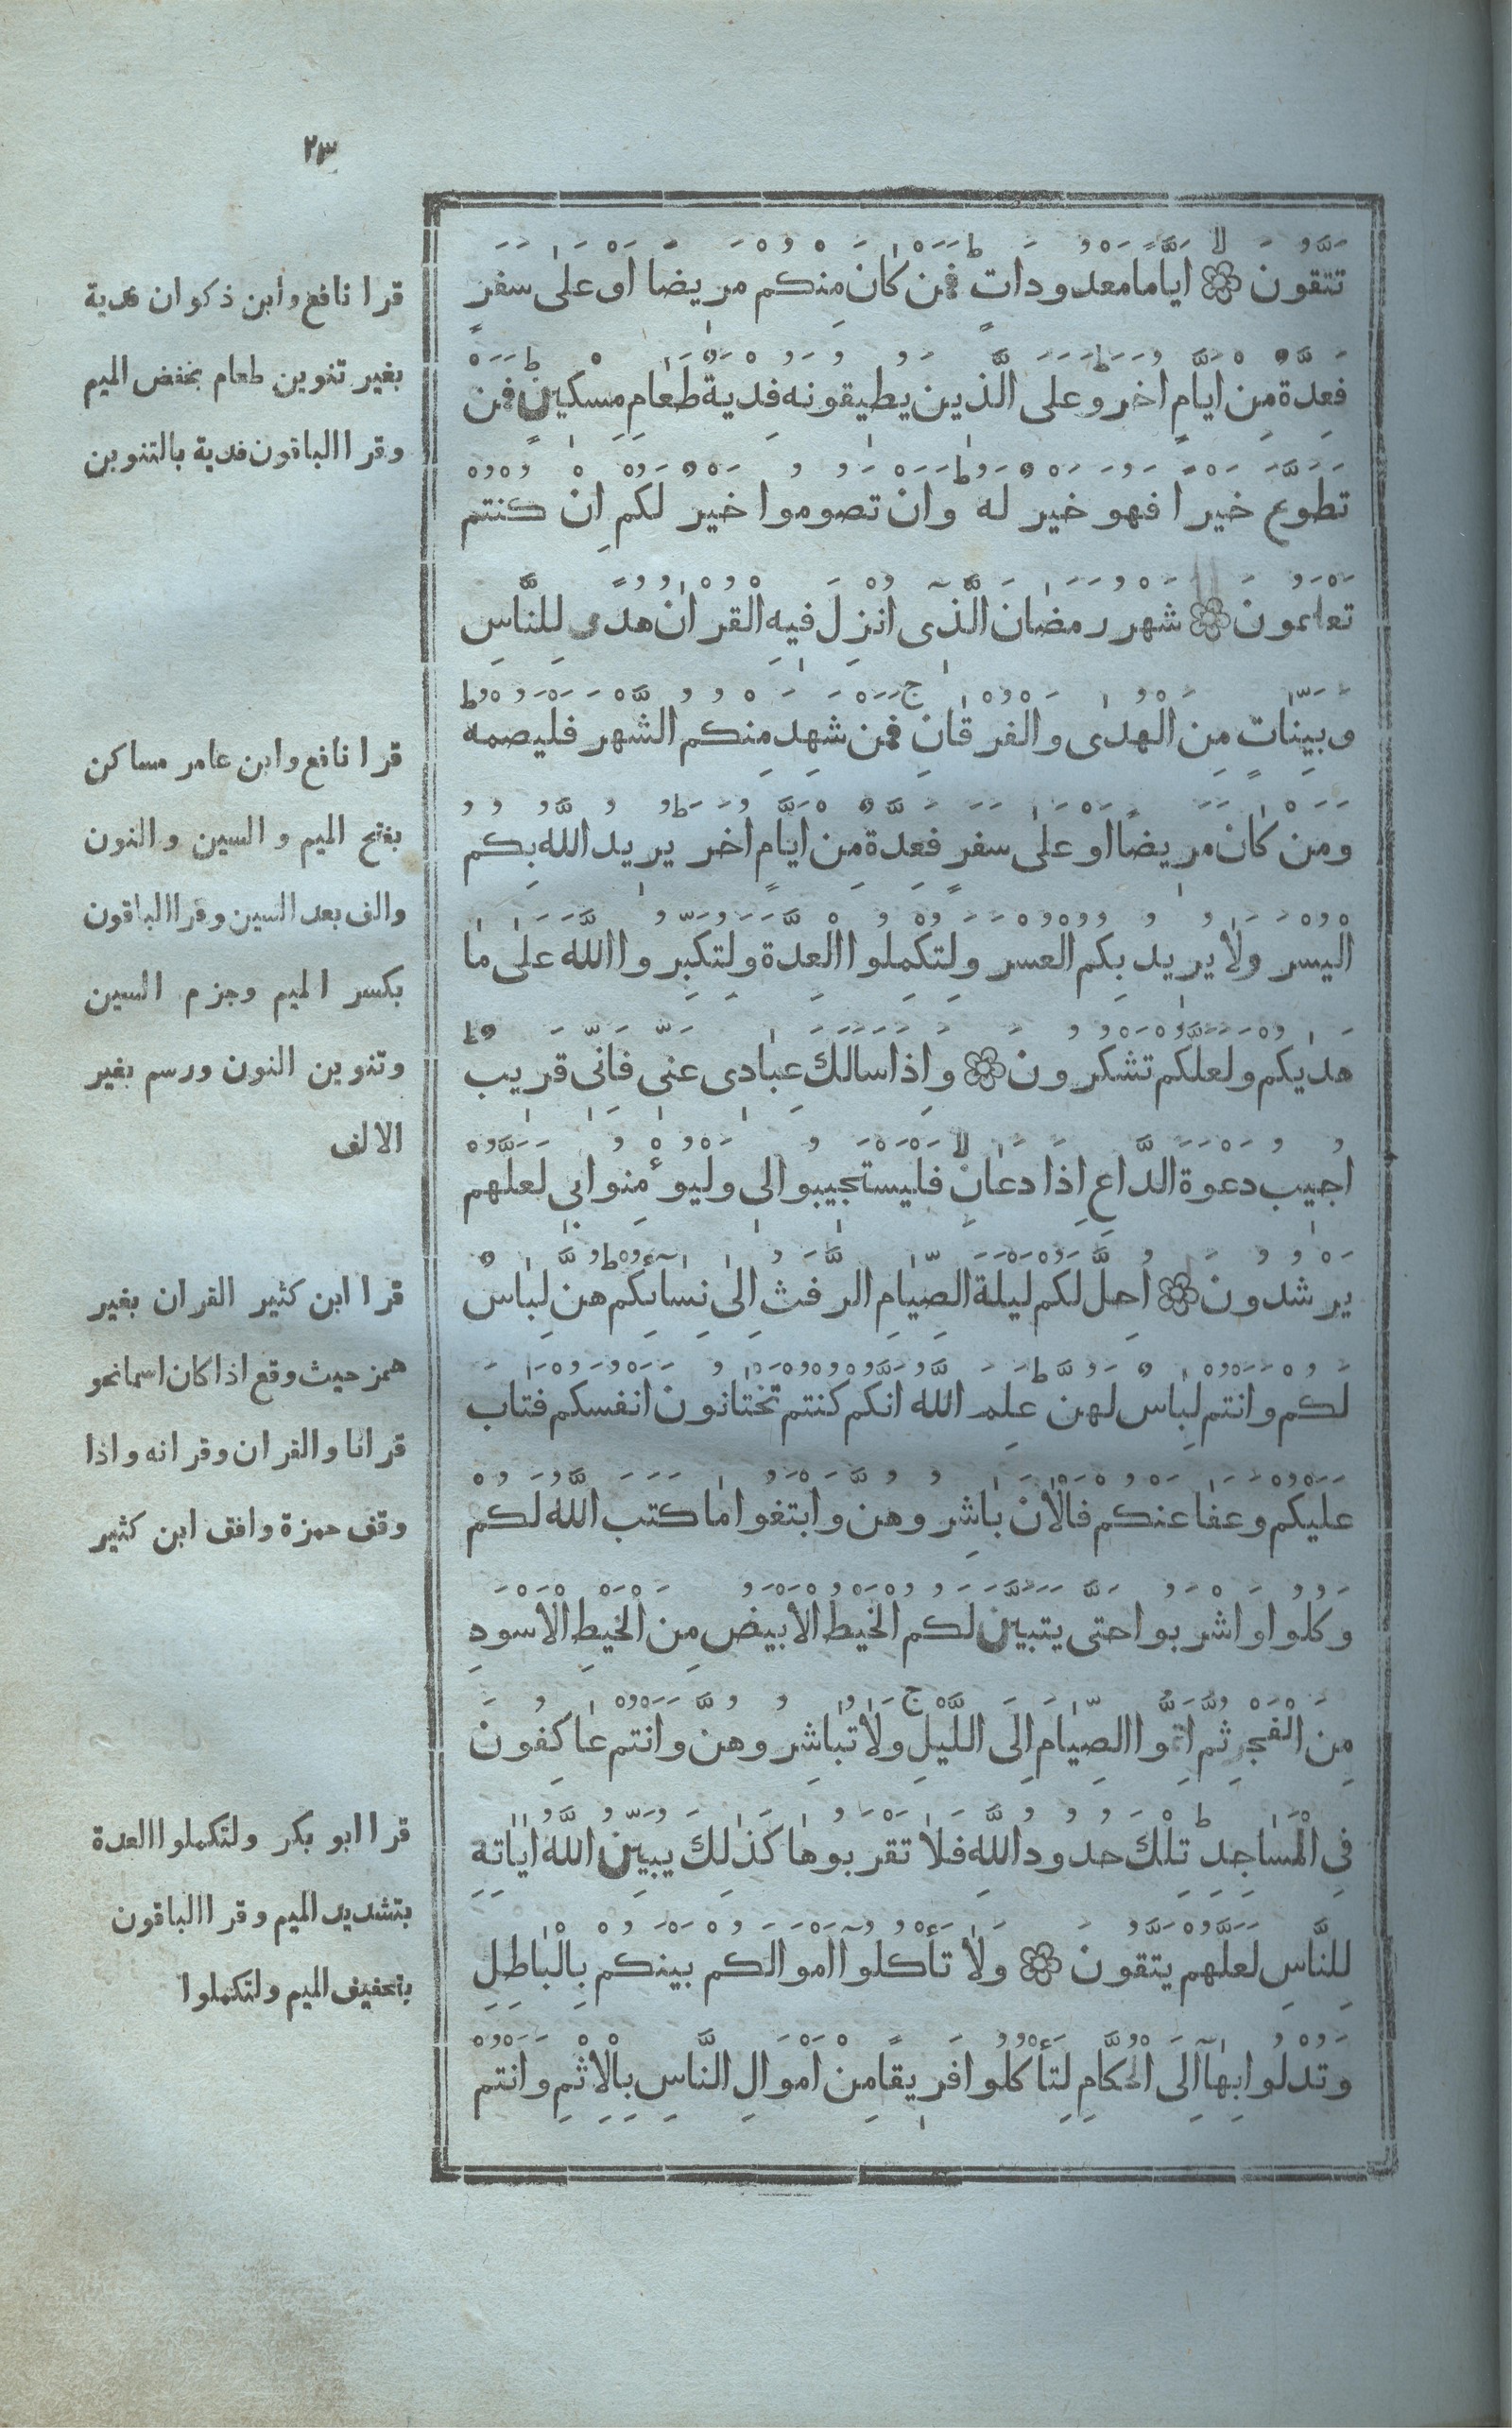 ٢٣
تَتَّقُونَ ۞ اَيَّامًا مَعْدُودَاتٍ ط فَمَنْ كَانَ مِنْكُمْ مَرِيضًا اَوْ عَلٰى سَفَرٍ
فَعِدَّةٌ مِنْ اَيَّامٍ اُخَرَ ط وَعَلَى الَّذِينَ يُطِيقُونَهُ فِدْيَةٌ طَعَامُ مِسْكِينٍ ط فَمَنْ
تَطَوَّعَ خَيْرًا فَهُوَ خَيْرٌ لَهُ ط وَاَنْ تَصُومُوا خَيْرٌ لَكُمْ اِنْ كُنْتُمْ
تَعْلَمُونَ ۞ شَهْرُ رَمَضَانَ الَّذِٓى اُنْزِلَ فِيهِ الْقُرْاٰنُ هُدًى لِلنَّاسِ
وَبَيِّنَاتٍ مِنَ الْهُدٰى وَالْفُرْقَانِ ج فَمَنْ شَهِدَ مِنْكُمُ الشَّهْرَ فَلْيَصُمْهُ ط
وَمَنْ كَانَ مَرِيضًا اَوْ عَلٰى سَفَرٍ فَعِدَّةٌ مِنْ اَيَّامٍ اُخَرَ ط يُرِيدُ اللّٰهُ بِكُمُ
الْيُسْرَ وَلَا يُرِيدُ بِكُمُ الْعُسْرَ وَلِتُكْمِلُوا الْعِدَّةَ وَلِتُكَبِّرُوا اللّٰهَ عَلٰى مَا
هَدٰيكُمْ وَلَعَلَّكُمْ تَشْكُرُونَ ۞ وَاِذَا سَاَلَكَ عِبَادِى عَنِّى فَاِنِّى قَرِيبٌ ط
اُجِيبُ دَعْوَةَ الدَّاعِ اِذَا دَعَانِ لا فَلْيَسْتَجِيبُوا لِى وَلْيُؤْمِنُوا بِى لَعَلَّهُمْ
يَرْشُدُونَ ۞ اُحِلَّ لَكُمْ لَيْلَةَ الصِّيَامِ الرَّفَثُ اِلٰى نِسَآئِكُمْ ط هُنَّ لِبَاسٌ
لَكُمْ وَاَنْتُمْ لِبَاسٌ لَهُنَّ ط عَلِمَ اللّٰهُ اَنَّكُمْ كُنْتُمْ تَخْتَانُونَ اَنْفُسَكُمْ فَتَابَ
عَلَيْكُمْ وَعَفَا عَنْكُمْ فَالْاٰنَ بَاشِرُوهُنَّ وَابْتَغُوا مَا كَتَبَ اللّٰهُ لَكُمْ
وَكُلُوا وَاشْرَبُوا حَتّٰى يَتَبَيَّنَ لَكُمُ الْخَيْطُ الْاَبْيَضُ مِنَ الْخَيْطِ الْاَسْوَدِ
مِنَ الْفَجْرِ ثُمَّ اَتِمُّوا الصِّيَامَ اِلَى اللَّيْلِ ج وَلَا تُبَاشِرُوهُنَّ وَاَنْتُمْ عَاكِفُونَ
فِى الْمَسَاجِدِ ط تِلْكَ حُدُودُ اللّٰهِ فَلَا تَقْرَبُوهَا كَذٰلِكَ يُبَيِّنُ اللّٰهُ اٰيَاتِهِ
لِلنَّاسِ لَعَلَّهُمْ يَتَّقُونَ ۞ وَلَا تَأْكُلُوٓا اَمْوَالَكُمْ بَيْنَكُمْ بِالْبَاطِلِ
وَتُدْلُوا بِهَآ اِلَى الْحُكَّامِ لِتَأْكُلُوا فَرِيقًا مِنْ اَمْوَالِ النَّاسِ بِالْاِثْمِ وَاَنْتُمْ
قرا نافع وابن ذكوان فدية
بغير تنوين طعام بخفض الميم
وقرا الباقون فدية بالتنوين
قرا نافع وابن عامر مساكن
بفتح الميم والسين والنون
والف بعد السين وقرا الباقون
بكسر الميم وجزم السين
وتنوين النون ورسم بغير
الالف
قرا ابن كثير القران بغير
همز حيث وقع اذا كان اسما نحو
قرانا والقران وقرانه واذا
وقف حمزة وافق ابن كثير
قرا ابو بكر ولتكملوا العدة
بتشديد الميم وقرا الباقون
بتخفيف الميم ولتكملوا